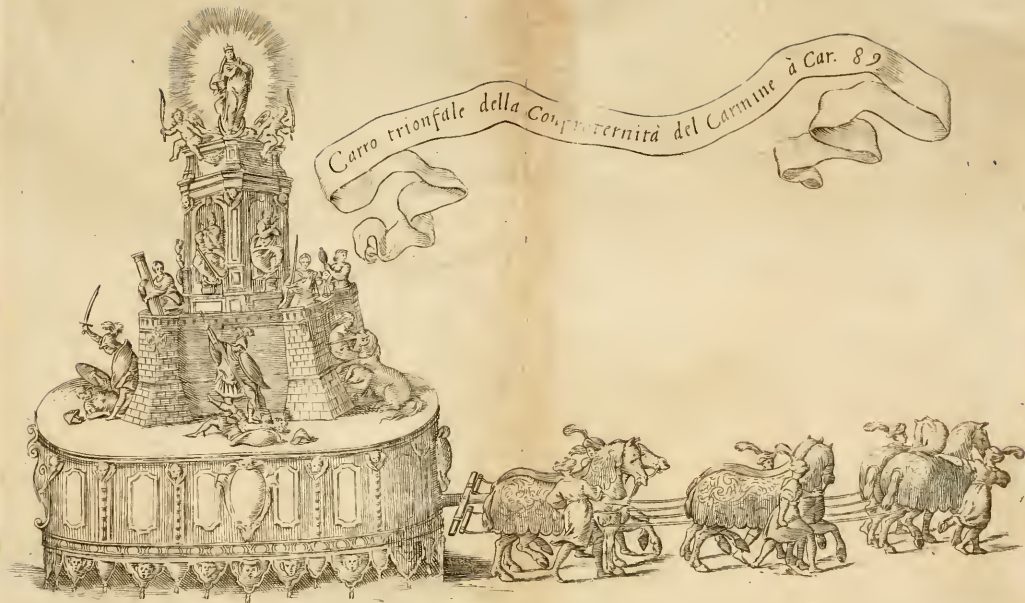 Carro trionfale della Confraternità del Carmine à Car. 89